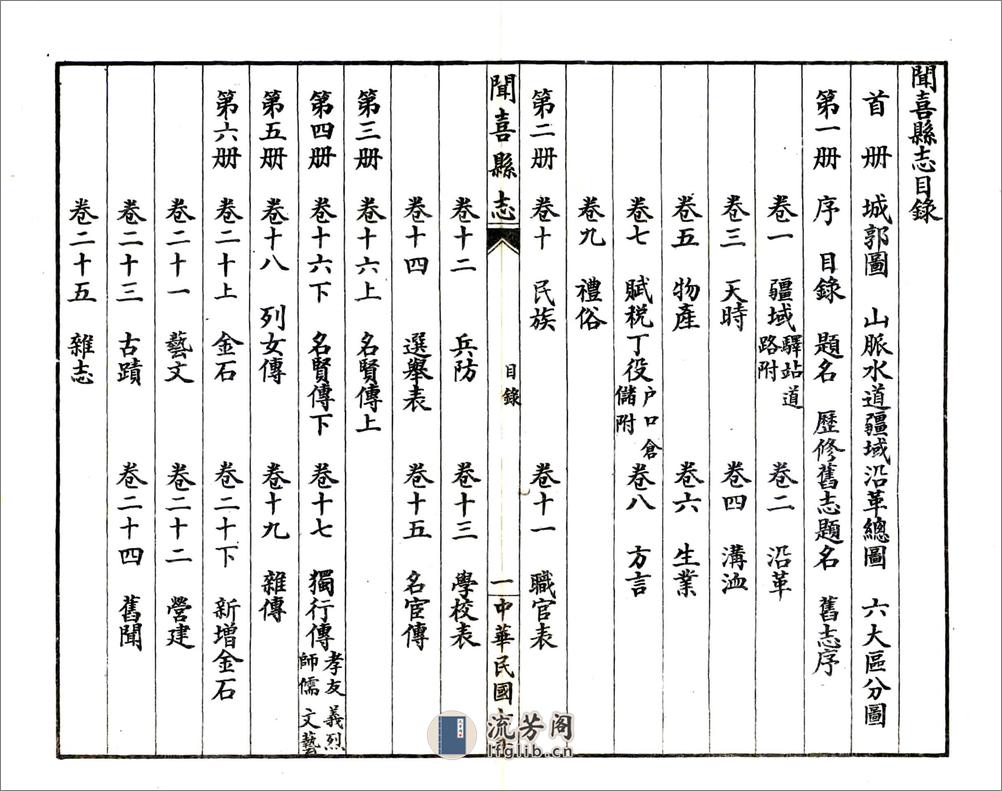 聞喜縣志目錄
首册 城郭圖 山脈水道疆域沿革總圖 六大區分圖
第一册 序 目錄 題名 歷修舊志題名 舊志序
卷一 疆域驛站道路附 卷二 沿革
卷三 天時 卷四 溝洫
卷五 物產 卷六 生業
卷七 賦稅丁役户口倉儲附 卷八 方言
卷九 禮俗
第二册 卷十 民族 卷十一 職官表
聞喜縣志 目錄 一 中華民國
卷十二 兵防 卷十三 學校表
卷十四 選舉表 卷十五 名宦傳
第三册 卷十六上 名賢傳上
第四册 卷十六下 名賢傳下 卷十七 獨行傳孝友 義烈師儒 文藝
第五册 卷十八 列女傳 卷十九 雜傳
第六册 卷二十上 金石 卷二十下 新增金石
卷二十一 藝文 卷二十二 營建
卷二十三 古蹟 卷二十四 舊聞
卷二十五 雜志
流芳阁
lfglib.cn